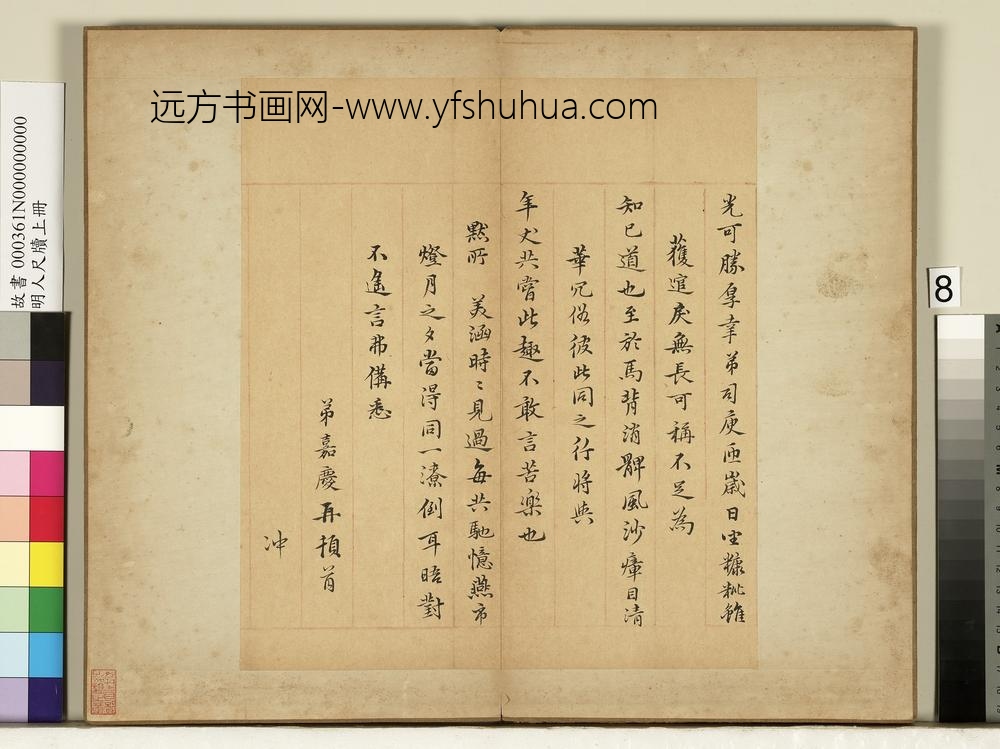 远方书画网-www.yfshuhua.com
光可勝厚幸弟司庾匝歲日坐糠粃雖
獲逭戾無長可稱不足為
知已道也至於馬背消髀風沙瘴目清
華冗俗彼此同之行將與
年丈共嘗此趣不敢言苦樂也
默所 美涵時〻見過每共馳憶燕市
燈月之夕當得同一潦倒耳晤對
不遙言弗備悉
弟嘉慶再頓首
冲
故書 000361N000000000
明人尺牘上冊
8